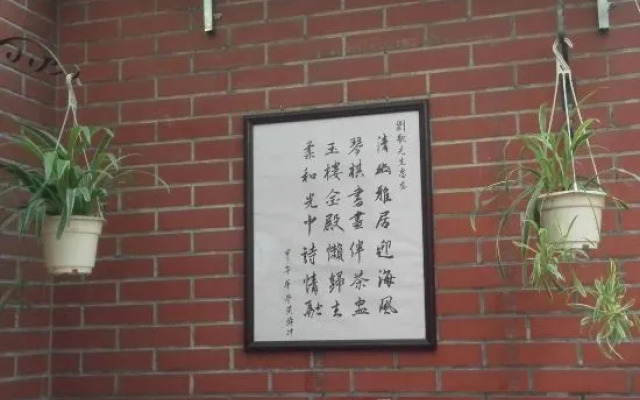 劉歡先生惠念
清幽雅居迎海風
琴棋書畫伴茶盅
玉樓金殿懶歸去
柔和光中詩情融
甲午年